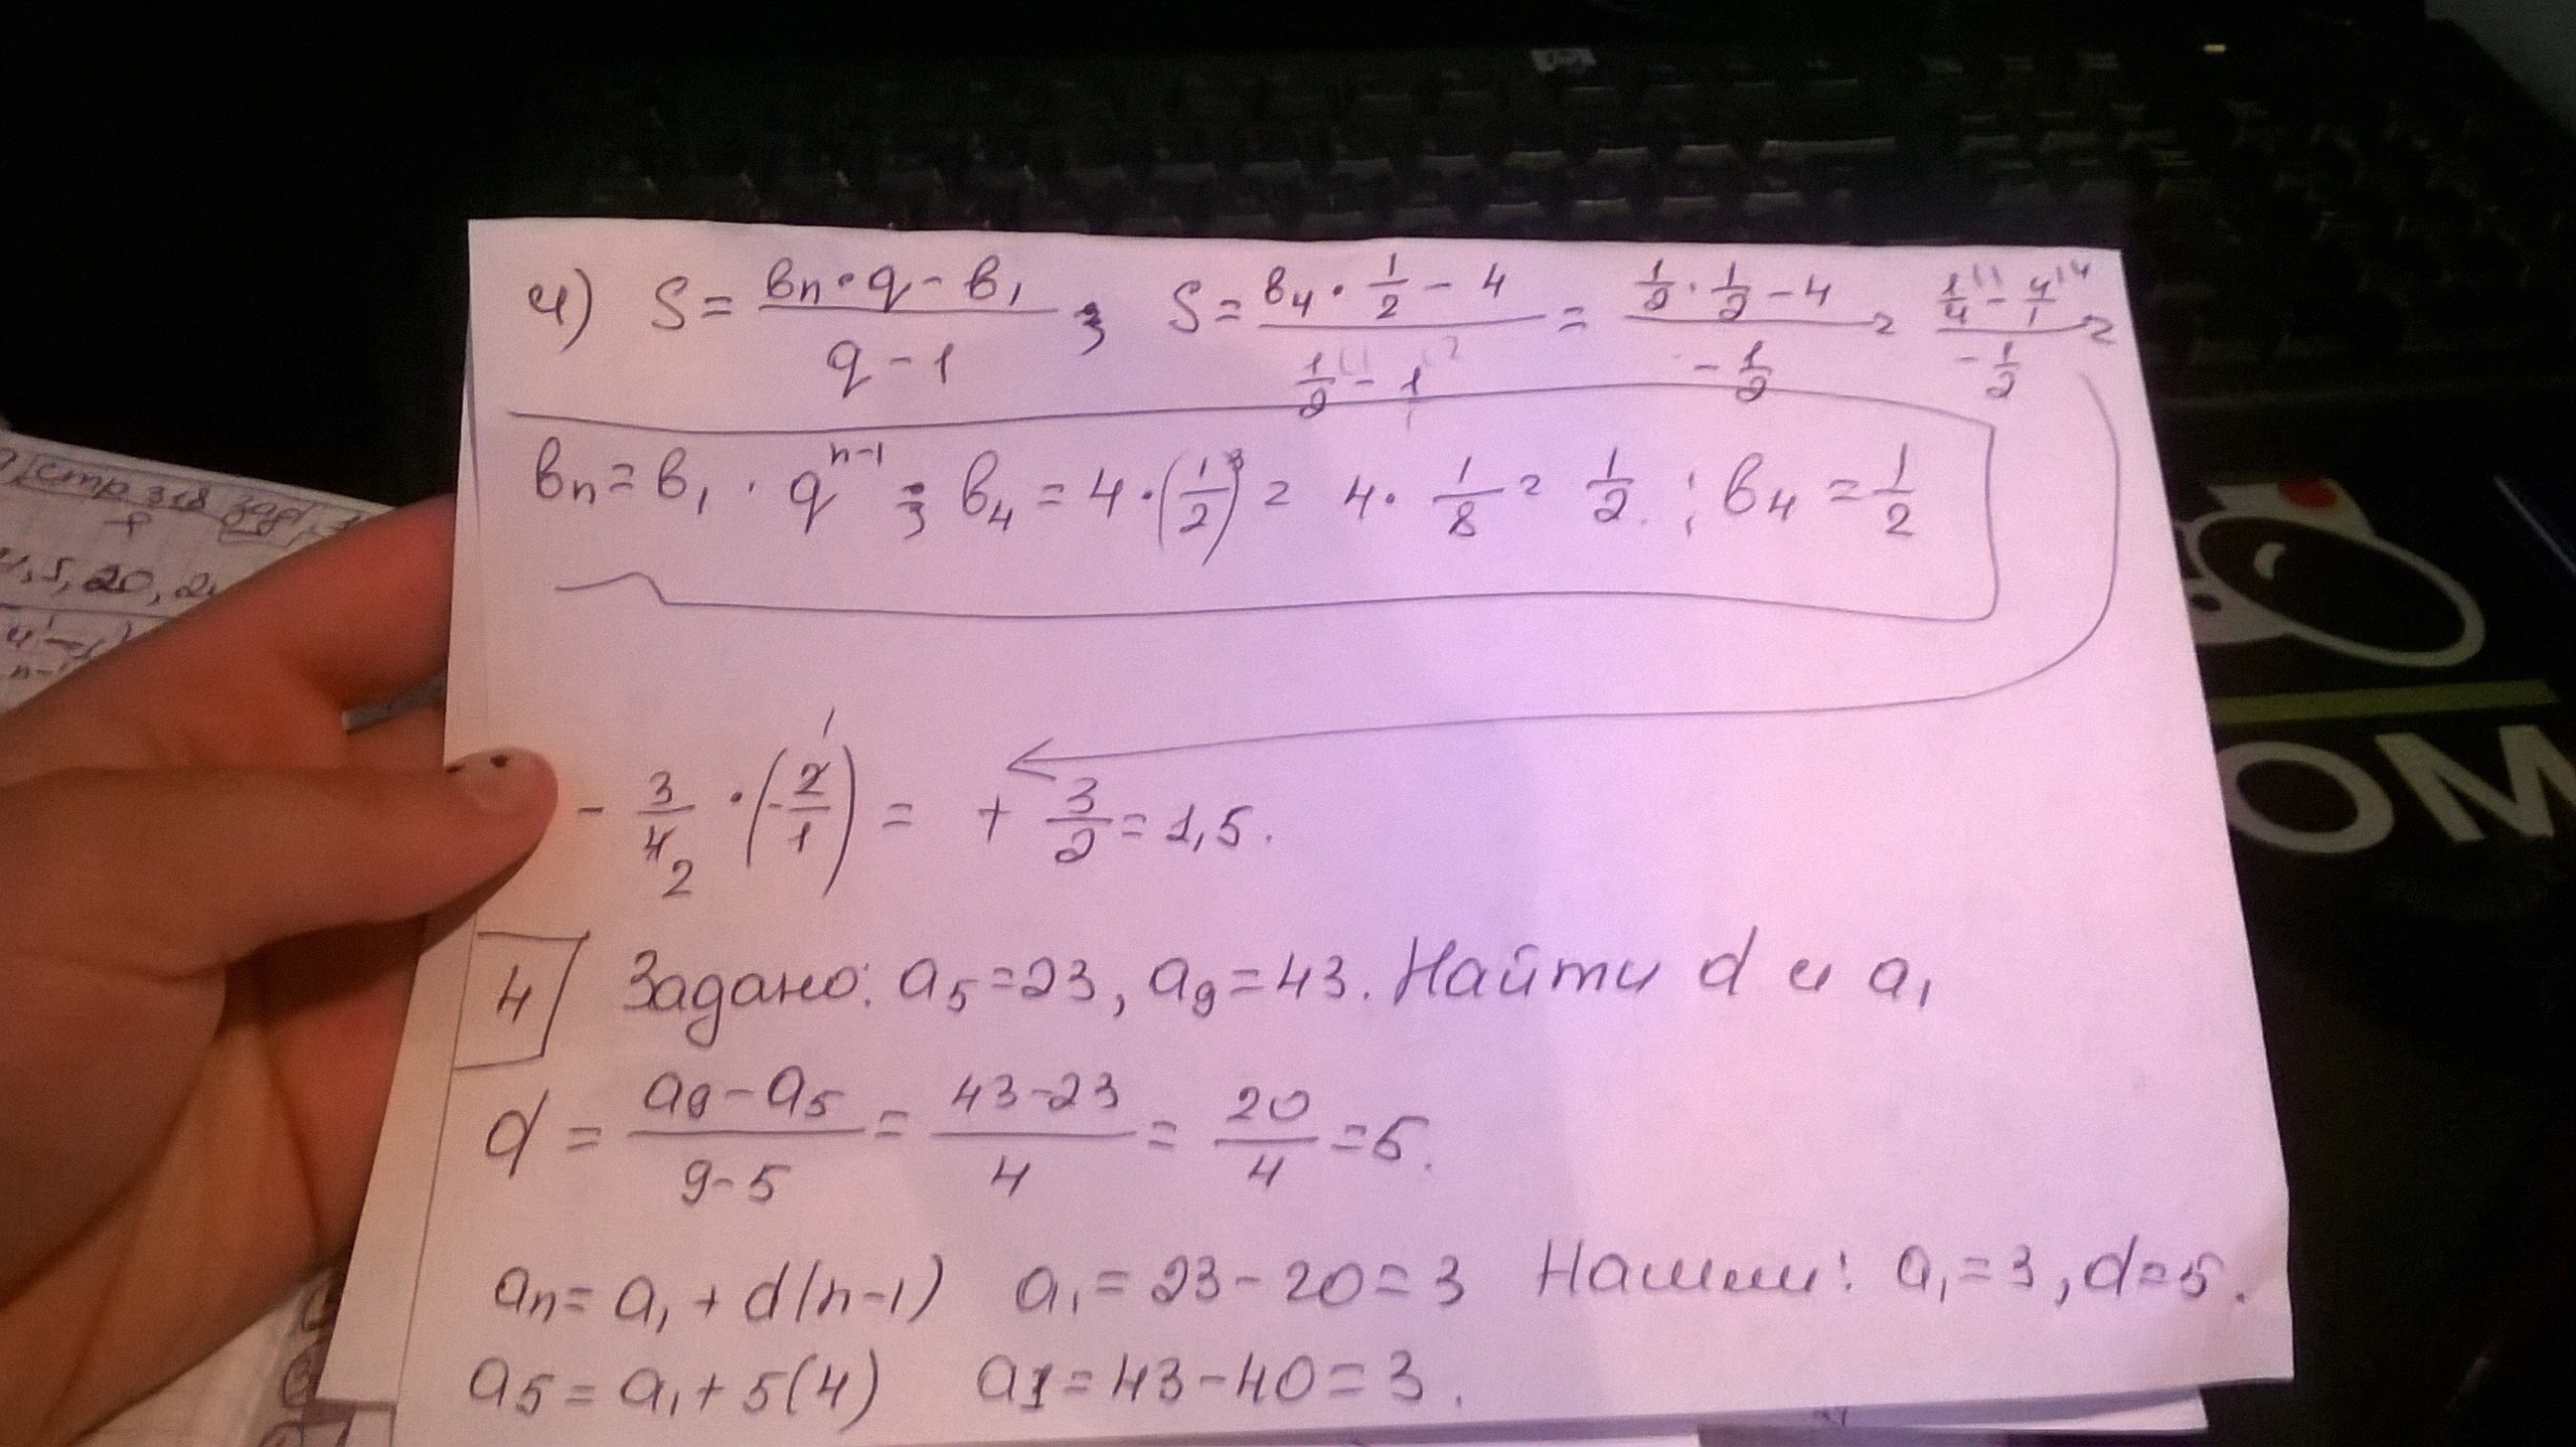 4) S = (bn · q - b1) / (q - 1) ; S = (b4 · 1/2 - 4) / (1/2 - 1/1) = (1/2 · 1/2 - 4) / (-1/2) = (1/4 - 4/1) / (-1/2) =
bn = b1 · q^(n-1) ; b4 = 4 · (1/2)^3 = 4 · 1/8 = 1/2 ; b4 = 1/2
- 3/4 2 · (-2/1) 1 = + 3/2 = 1,5.
4 Задано: a5 = 23, a9 = 43. Найти d и a1
d = (a9 - a5) / (9 - 5) = (43 - 23) / 4 = 20/4 = 5.
an = a1 + d(n-1) a1 = 23 - 20 = 3 Нашли: a1 = 3, d = 5.
a5 = a1 + 5(4) a1 = 43 - 40 = 3.
стр 318 зад.
OM